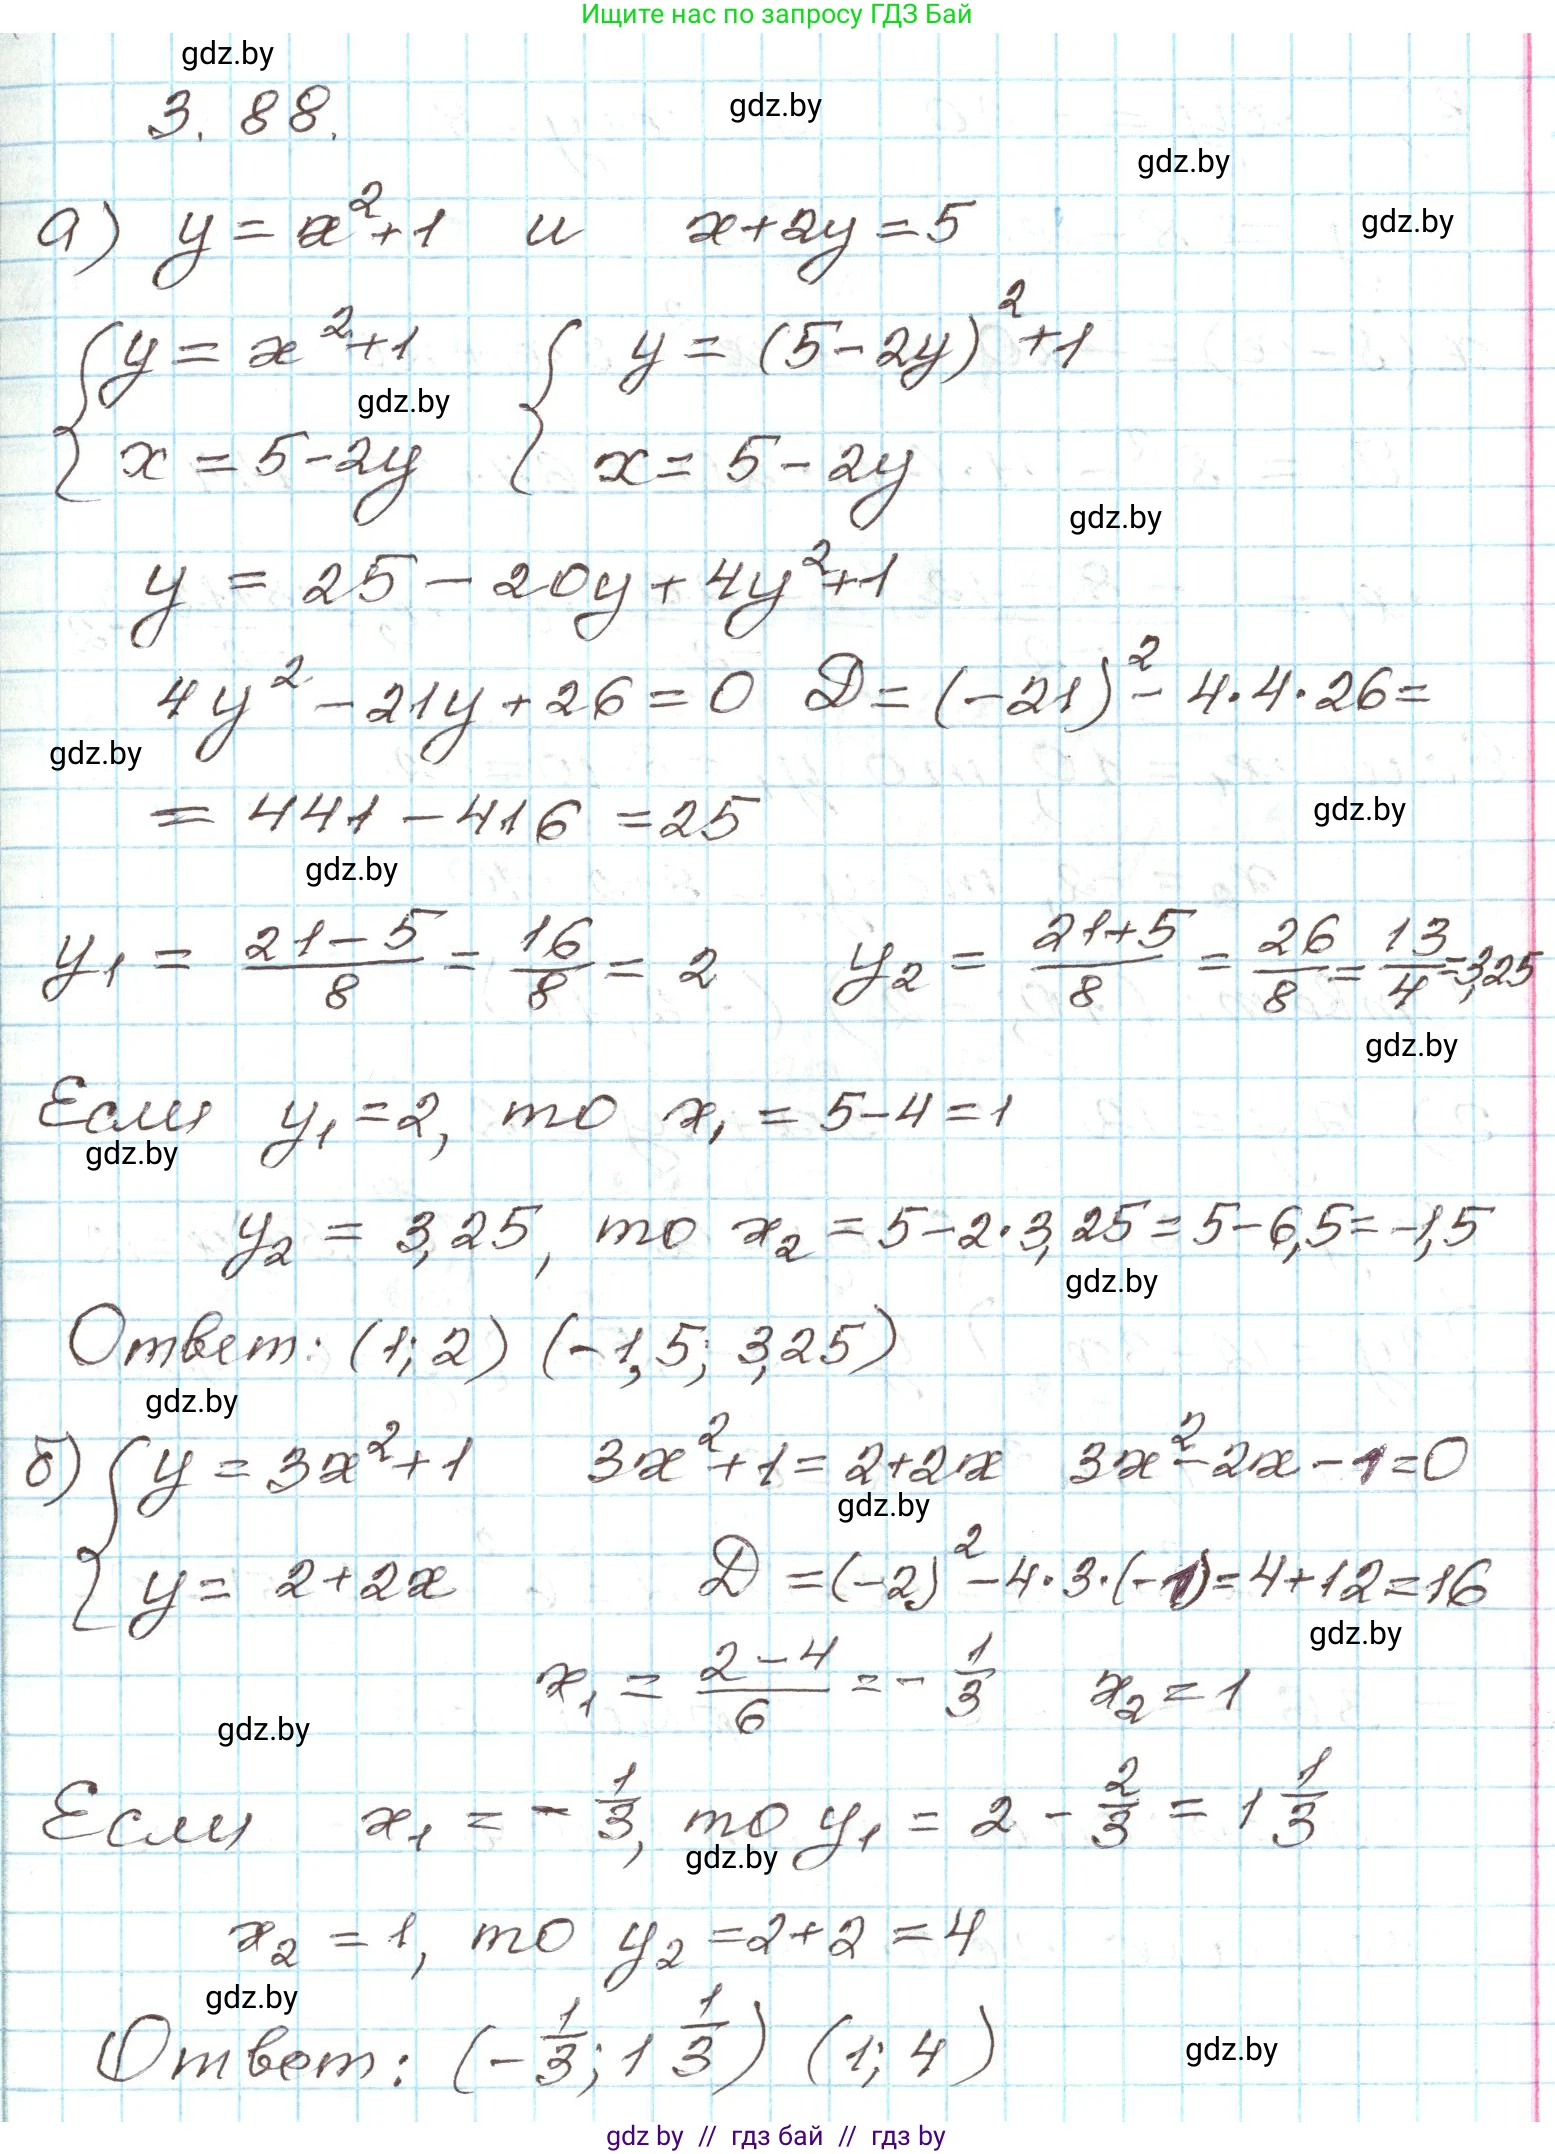 Ищите нас по запросу ГДЗ Бай
gdz.by
3.88.
gdz.by
gdz.by
а) y = x²+1 и x+2y=5
gdz.by
{y = x²+1 {y = (5-2y)²+1
gdz.by
x = 5-2y x = 5-2y
gdz.by
y = 25 - 20y + 4y²+1
4y² - 21y + 26 = 0 D = (-21)² - 4·4·26 =
gdz.by
= 441 - 416 = 25
gdz.by
gdz.by
y₁ = (21-5)/8 = 16/8 = 2 y₂ = (21+5)/8 = 26/8 = 13/4 = 3,25
gdz.by
Если y₁ = 2, то x₁ = 5-4 = 1
gdz.by
y₂ = 3,25, то x₂ = 5-2·3,25 = 5-6,5 = -1,5
gdz.by
Ответ: (1; 2) (-1,5; 3,25)
gdz.by
б) {y = 3x²+1 3x²+1 = 2+2x 3x²-2x-1=0
gdz.by
y = 2+2x D = (-2)² - 4·3·(-1) = 4+12 = 16
gdz.by
x₁ = (2-4)/6 = - 1/3 x₂ = 1
gdz.by
Если x₁ = - 1/3, то y₁ = 2 - 2/3 = 1 1/3
gdz.by
x₂ = 1, то y₂ = 2+2 = 4
gdz.by
Ответ: (- 1/3; 1 1/3) (1; 4)
gdz.by
gdz by // гдз бай // гдз by